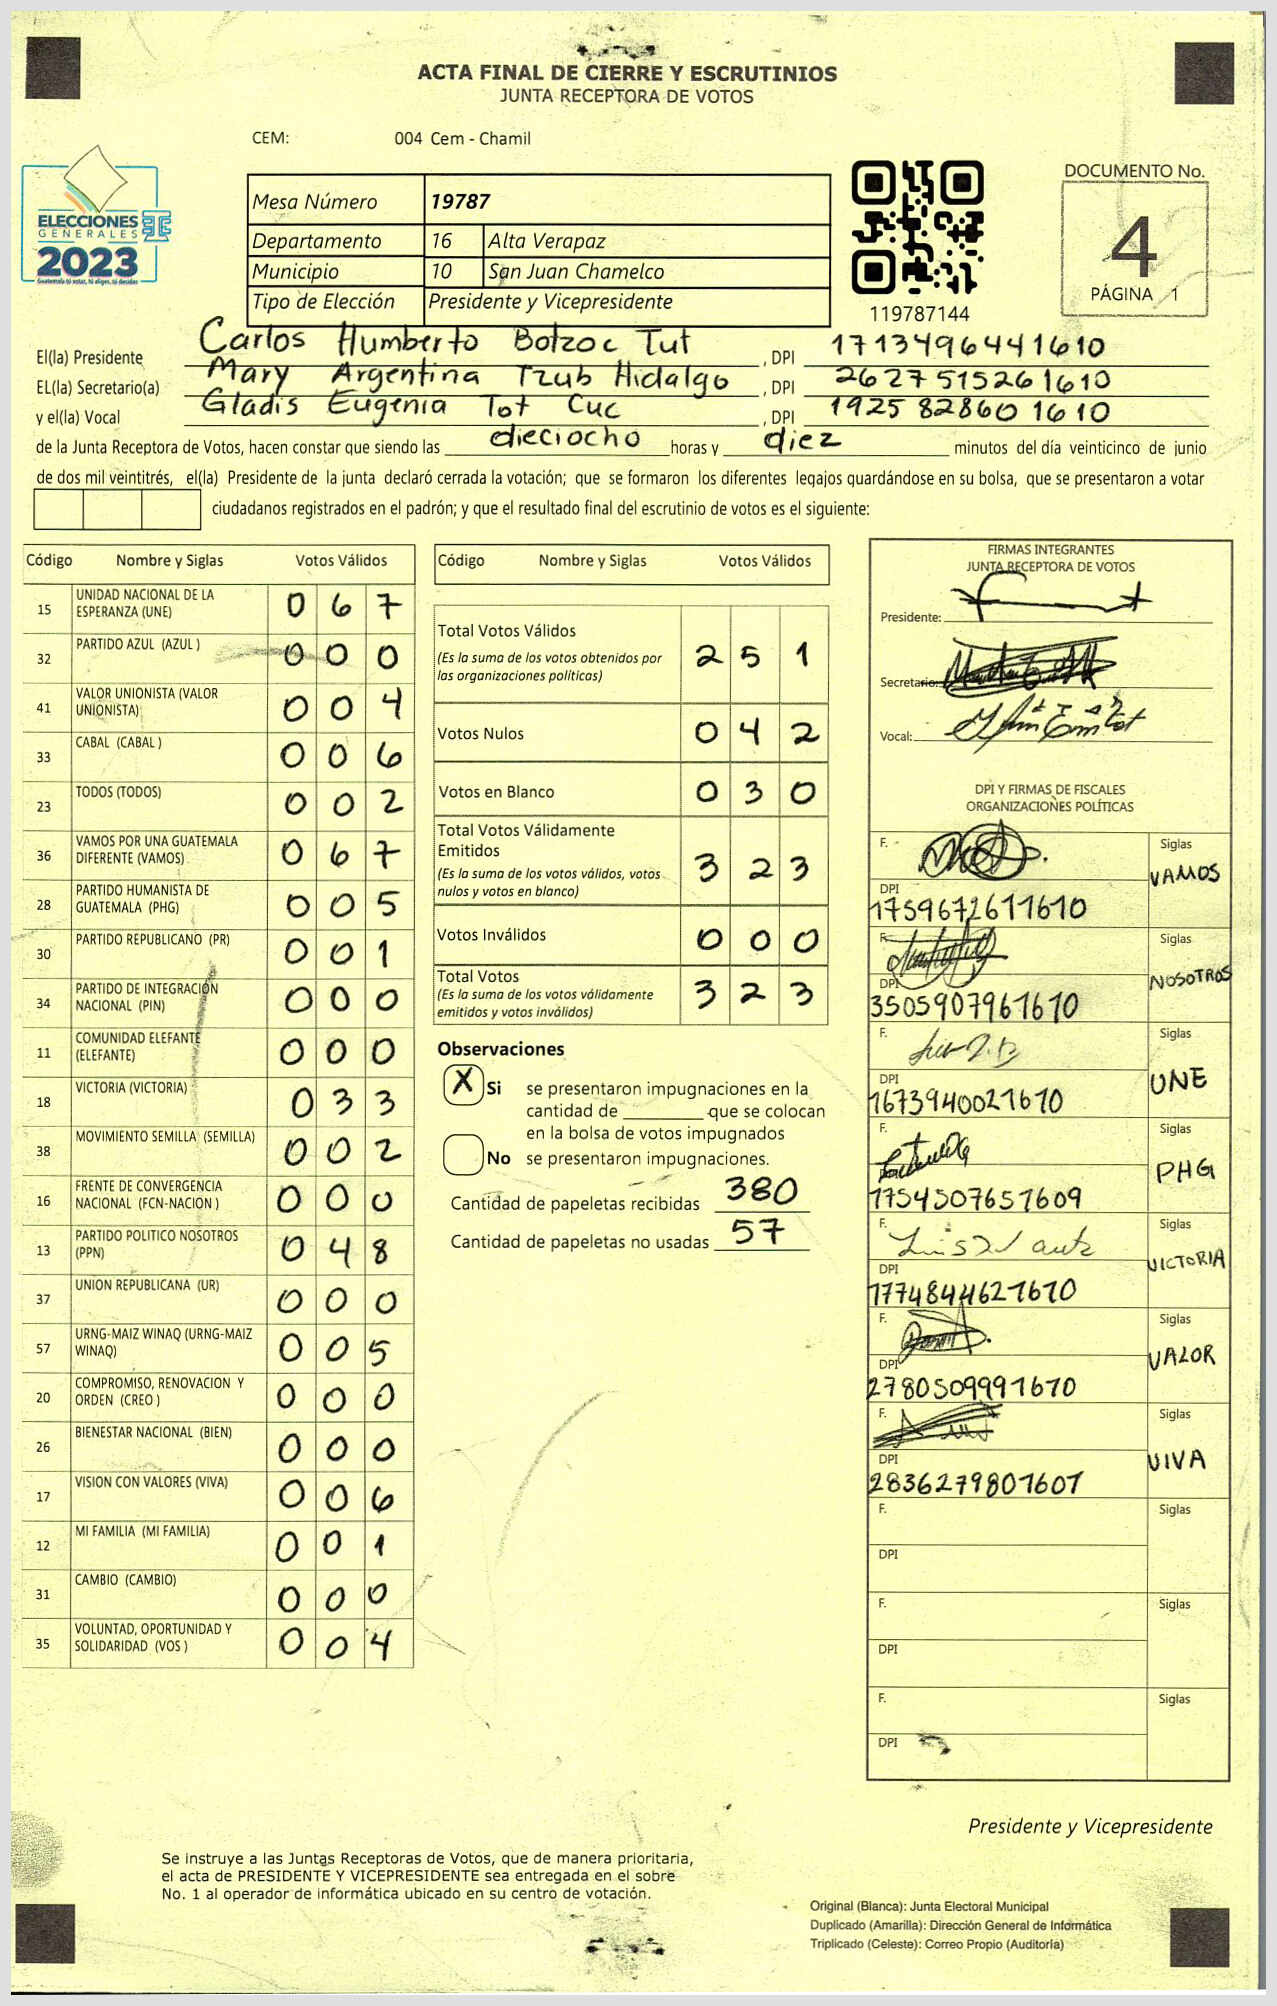 ACTA FINAL DE CIERRE Y ESCRUTINIOS
JUNTA RECEPTORA DE VOTOS
CEM: 004 Cem - Chamil
ELECCIONES
GENERALES
2023
Guatemala tú votas, tú eliges, tú decides
Mesa Número 19787
Departamento 16 Alta Verapaz
Municipio 10 San Juan Chamelco
Tipo de Elección Presidente y Vicepresidente
119787144
DOCUMENTO No.
4
PÁGINA 1
El(la) Presidente Carlos Humberto Botzoc Tut , DPI 1713496441610
EL(la) Secretario(a) Mary Argentina Tzub Hidalgo , DPI 2627515261610
y el(la) Vocal Gladis Eugenia Tot Cuc , DPI 1925828601610
de la Junta Receptora de Votos, hacen constar que siendo las dieciocho horas y diez minutos del día veinticinco de junio
de dos mil veintitrés, el(la) Presidente de la junta declaró cerrada la votación; que se formaron los diferentes legajos guardándose en su bolsa, que se presentaron a votar
ciudadanos registrados en el padrón; y que el resultado final del escrutinio de votos es el siguiente:
Código Nombre y Siglas Votos Válidos
15 UNIDAD NACIONAL DE LA ESPERANZA (UNE) 0 6 7
32 PARTIDO AZUL (AZUL ) 0 0 0
41 VALOR UNIONISTA (VALOR UNIONISTA) 0 0 4
33 CABAL (CABAL ) 0 0 6
23 TODOS (TODOS) 0 0 2
36 VAMOS POR UNA GUATEMALA DIFERENTE (VAMOS) 0 6 7
28 PARTIDO HUMANISTA DE GUATEMALA (PHG) 0 0 5
30 PARTIDO REPUBLICANO (PR) 0 0 1
34 PARTIDO DE INTEGRACIÓN NACIONAL (PIN) 0 0 0
11 COMUNIDAD ELEFANTE (ELEFANTE) 0 0 0
18 VICTORIA (VICTORIA) 0 3 3
38 MOVIMIENTO SEMILLA (SEMILLA) 0 0 2
16 FRENTE DE CONVERGENCIA NACIONAL (FCN-NACION ) 0 0 0
13 PARTIDO POLITICO NOSOTROS (PPN) 0 4 8
37 UNION REPUBLICANA (UR) 0 0 0
57 URNG-MAIZ WINAQ (URNG-MAIZ WINAQ) 0 0 5
20 COMPROMISO, RENOVACION Y ORDEN (CREO ) 0 0 0
26 BIENESTAR NACIONAL (BIEN) 0 0 0
17 VISION CON VALORES (VIVA) 0 0 6
12 MI FAMILIA (MI FAMILIA) 0 0 1
31 CAMBIO (CAMBIO) 0 0 0
35 VOLUNTAD, OPORTUNIDAD Y SOLIDARIDAD (VOS ) 0 0 4
Código Nombre y Siglas Votos Válidos
Total Votos Válidos 2 5 1
(Es la suma de los votos obtenidos por
las organizaciones políticas)
Votos Nulos 0 4 2
Votos en Blanco 0 3 0
Total Votos Válidamente
Emitidos 3 2 3
(Es la suma de los votos válidos, votos
nulos y votos en blanco)
Votos Inválidos 0 0 0
Total Votos 3 2 3
(Es la suma de los votos válidamente
emitidos y votos inválidos)
Observaciones
X Si se presentaron impugnaciones en la
cantidad de ________ que se colocan
en la bolsa de votos impugnados
No se presentaron impugnaciones.
Cantidad de papeletas recibidas 380
Cantidad de papeletas no usadas 57
FIRMAS INTEGRANTES
JUNTA RECEPTORA DE VOTOS
Presidente:
Secretario:
Vocal:
DPI Y FIRMAS DE FISCALES
ORGANIZACIONES POLÍTICAS
F. Siglas VAMOS
DPI 1759672611610
F. Siglas NOSOTROS
DPI 3505907961610
F. Siglas UNE
DPI 1673940021610
F. Siglas PHG
1754507651609
F. Siglas VICTORIA
DPI 1774844621610
F. Siglas VALOR
DPI 2780509991610
F. Siglas VIVA
DPI 2836279801601
F. Siglas
DPI
F. Siglas
DPI
F. Siglas
DPI
Presidente y Vicepresidente
Se instruye a las Juntas Receptoras de Votos, que de manera prioritaria,
el acta de PRESIDENTE Y VICEPRESIDENTE sea entregada en el sobre
No. 1 al operador de informática ubicado en su centro de votación.
Original (Blanca): Junta Electoral Municipal
Duplicado (Amarilla): Dirección General de Informática
Triplicado (Celeste): Correo Propio (Auditoría)